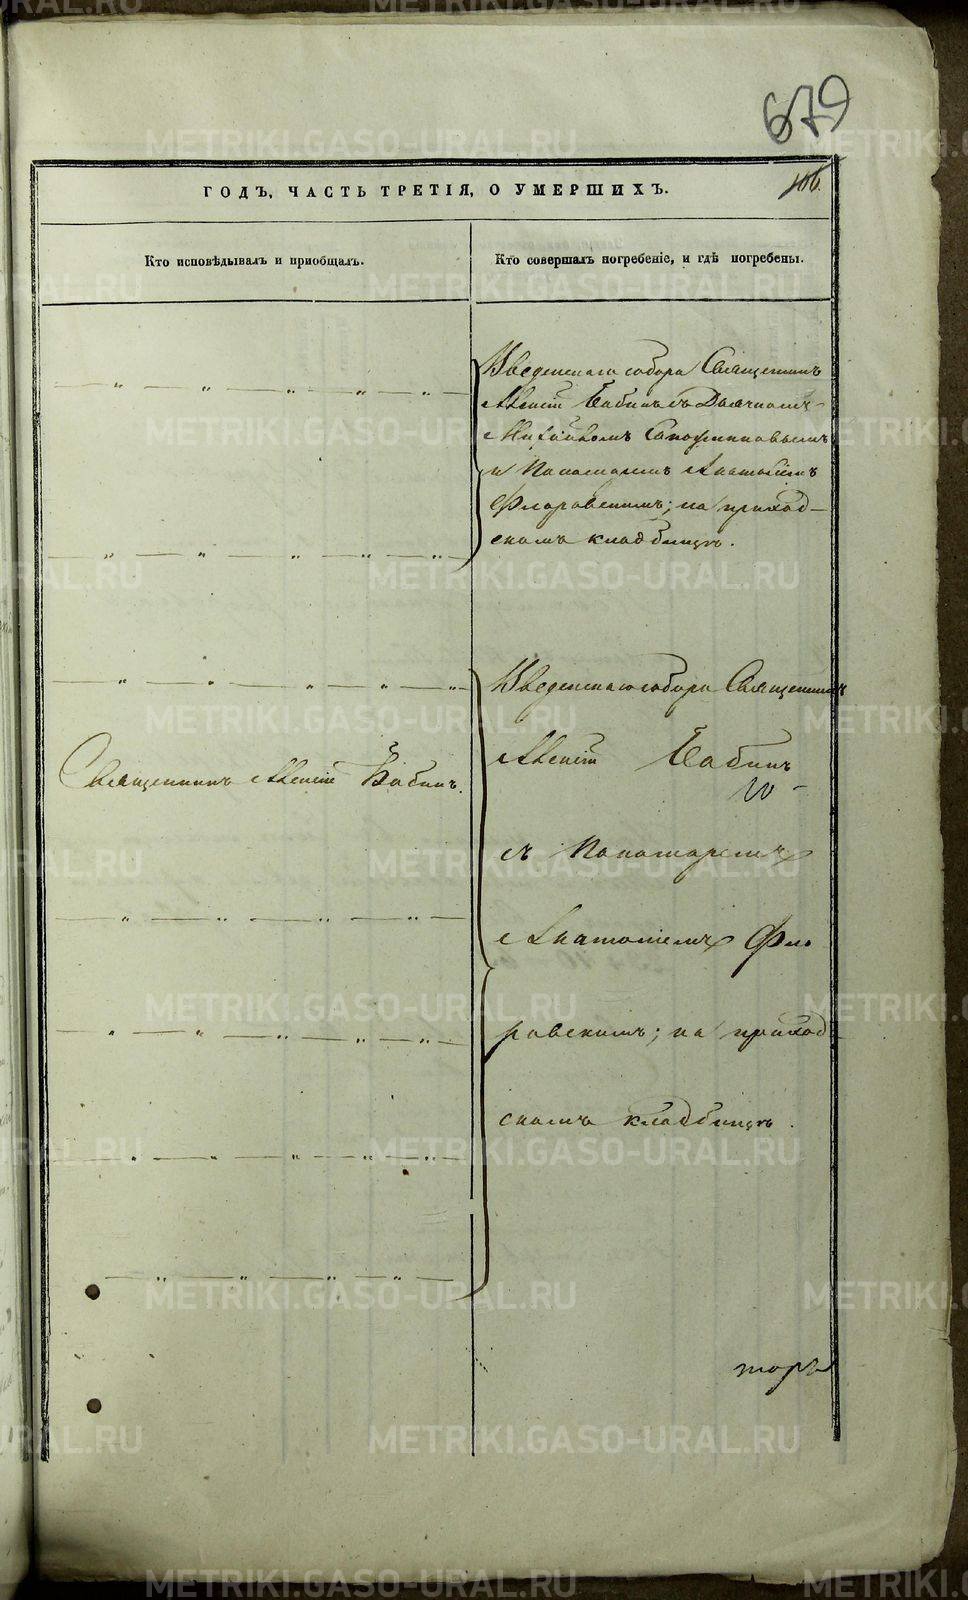 679
106.
ГОДЪ, ЧАСТЬ ТРЕТІЯ, О УМЕРШИХЪ.
Кто исповѣдывалъ и приобщалъ.
Кто совершалъ погребеніе, и гдѣ погребены.
Введенскаго собора Священникъ
Алексій Бабинъ съ Дьячкомъ
Михаиломъ
и Пономаремъ Анатоліемъ
Флоровскимъ; на приход-
скомъ кладбищѣ.
Введенскаго собора Священникъ
Алексій Бабинъ
съ Пономаремъ
Анатоліемъ Фло
ровскимъ; на приход-
скомъ кладбищѣ.
Священникъ Алексій Бабинъ.
METRIKI.GASO-URAL.RU